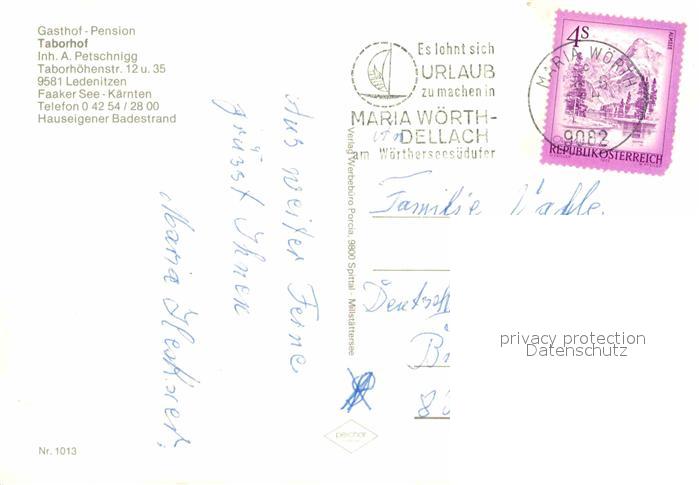 Gasthof - Pension
Taborhof
Inh. A. Petschnigg
Taborhöhenstr. 12 u. 35
9581 Ledenitzen
Faaker See - Kärnten
Telefon 0 42 54 / 28 00
Hauseigener Badestrand
Nr. 1013
Aus weiter Ferne
grüsst Ihnen
Maria
Verlag Werbebüro Porcia, 9800 Spittal - Millstättersee
Es lohnt sich
URLAUB
zu machen in
MARIA WÖRTH-
DELLACH
am Wörtherseesüdufer
MARIA WÖRTH
9082
4S
REPUBLIK ÖSTERREICH
Familie
Deutsch
privacy protection
Datenschutz